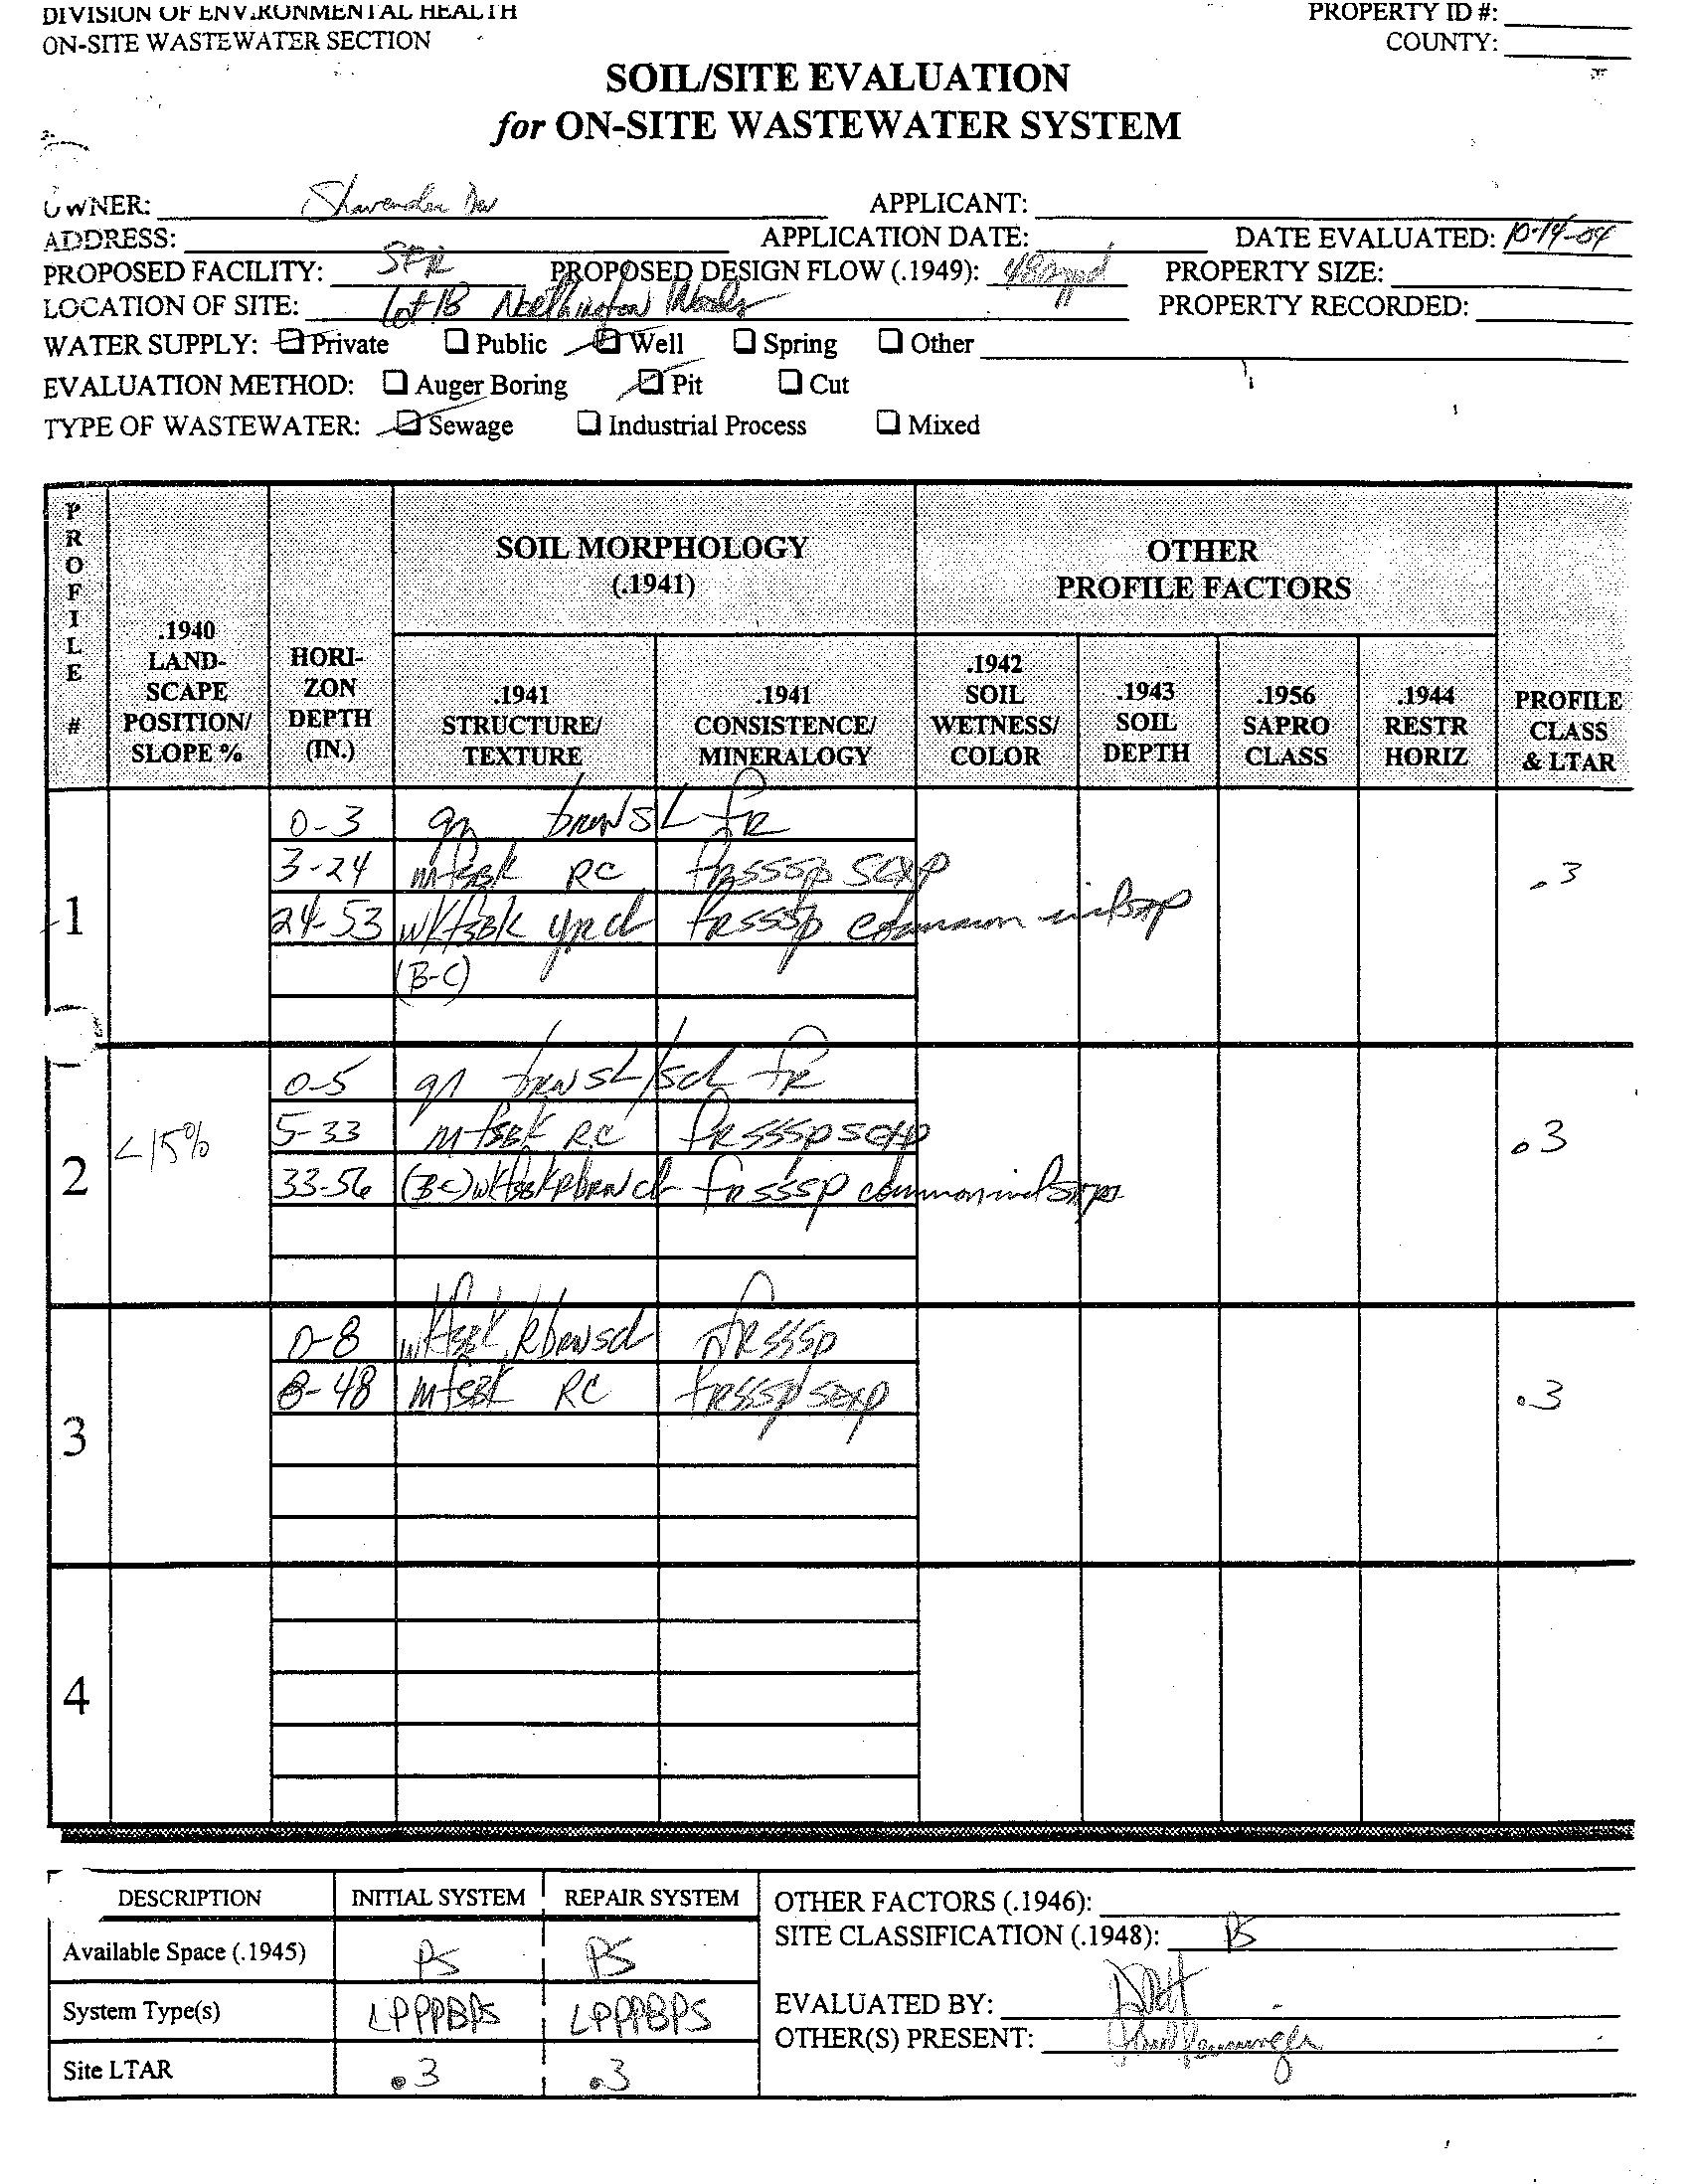 DIVISION OF ENVIRONMENTAL HEALTH
ON-SITE WASTEWATER SECTION
PROPERTY ID #:
COUNTY:
SOIL/SITE EVALUATION
for ON-SITE WASTEWATER SYSTEM
OWNER:
APPLICANT:
ADDRESS:
APPLICATION DATE:
DATE EVALUATED: 10-14-04
PROPOSED FACILITY: SFR
PROPOSED DESIGN FLOW (.1949): 480gpd
PROPERTY SIZE:
LOCATION OF SITE: Lot 18
PROPERTY RECORDED:
WATER SUPPLY: Private Public Well Spring Other
EVALUATION METHOD: Auger Boring Pit Cut
TYPE OF WASTEWATER: Sewage Industrial Process Mixed
PROFILE #
.1940 LAND-
SCAPE
POSITION/
SLOPE %
HORI-
ZON
DEPTH
(IN.)
SOIL MORPHOLOGY
(.1941)
.1941
STRUCTURE/
TEXTURE
.1941
CONSISTENCE/
MINERALOGY
OTHER
PROFILE FACTORS
.1942
SOIL
WETNESS/
COLOR
.1943
SOIL
DEPTH
.1956
SAPRO
CLASS
.1944
RESTR
HORIZ
PROFILE
CLASS
& LTAR
1
0-3 gr brnSL fR
3-24 mfsbk RC fRSSSp SEXP
24-53 wkfsbk fRSSSp common
(B-C)
.3
2
<15%
0-5 gr brnSL/scl fR
5-33 mfsbk RC fRSSSp SEXP
33-56 (BC) fRSSSp common
.3
3
0-8 wkfsbk Rbrnscl fRSSSp
8-48 mfsbk RC fRSSSp SEXP
.3
4
DESCRIPTION INITIAL SYSTEM REPAIR SYSTEM
Available Space (.1945) PS PS
System Type(s) LPPPBPS LPPPBPS
Site LTAR .3 .3
OTHER FACTORS (.1946):
SITE CLASSIFICATION (.1948): PS
EVALUATED BY:
OTHER(S) PRESENT: